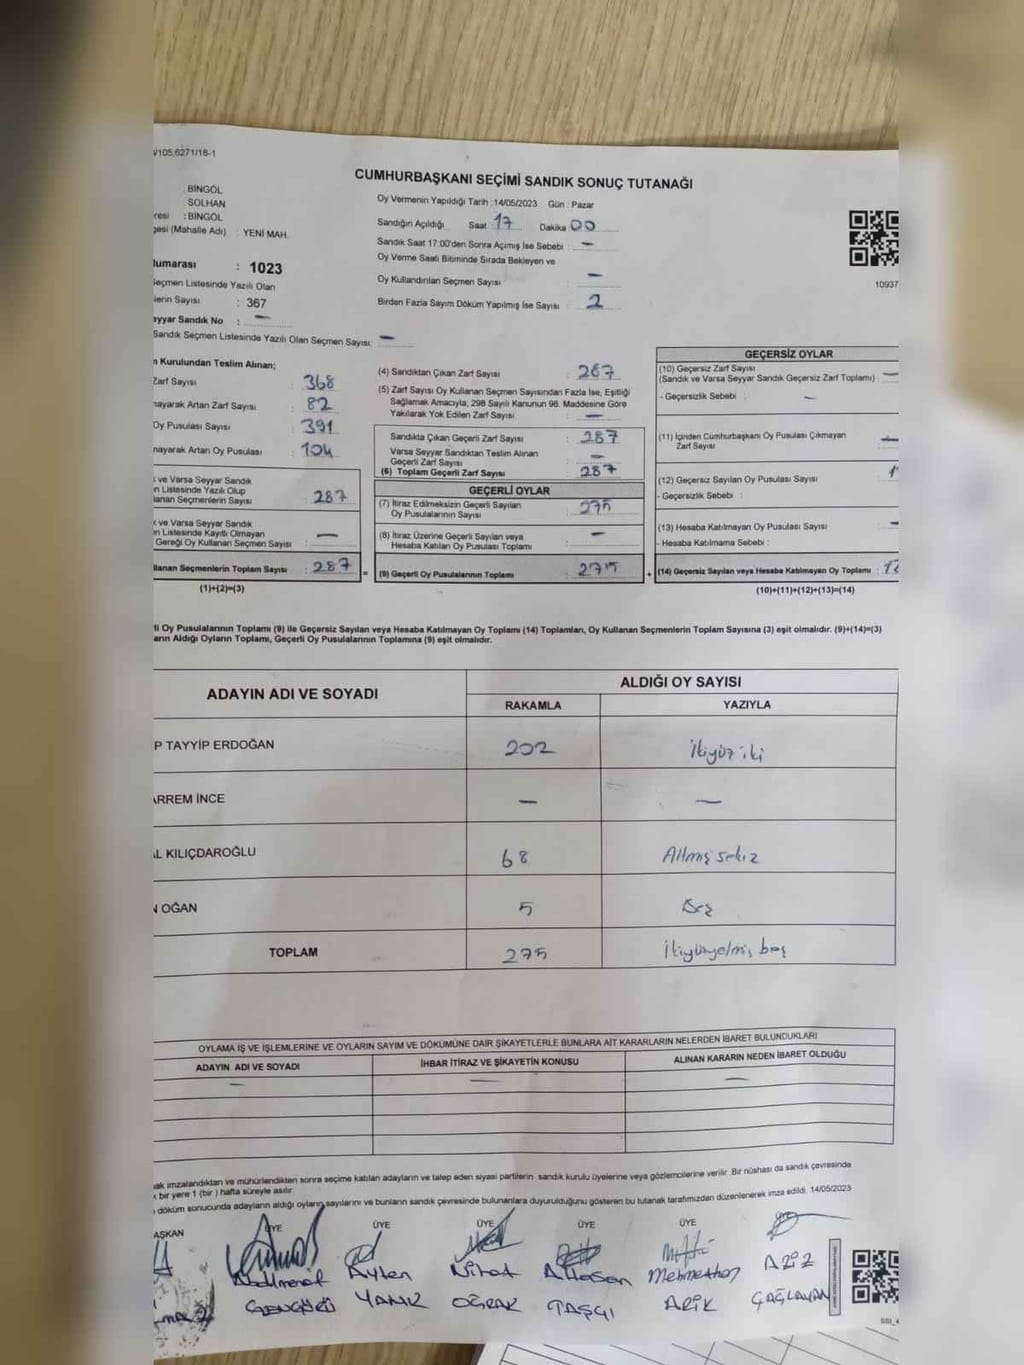 V105.6271/18-1
CUMHURBAŞKANI SEÇİMİ SANDIK SONUÇ TUTANAĞI
BİNGÖL
SOLHAN
resi : BİNGÖL
gesi (Mahalle Adı) YENİ MAH.
Oy Vermenin Yapıldığı Tarih : 14/05/2023 Gün : Pazar
Sandığın Açıldığı Saat 17 Dakika 00
Sandık Saat 17:00'den Sonra Açımış İse Sebebi : —
Oy Verme Saati Bitiminde Sırada Bekleyen ve
Oy Kullandırılan Seçmen Sayısı : —
Birden Fazla Sayım Döküm Yapılmış İse Sayısı : 2
10937
umarası : 1023
eçmen Listesinde Yazılı Olan
lerin Sayısı : 367
eyyar Sandık No : —
Sandık Seçmen Listesinde Yazılı Olan Seçmen Sayısı: —
n Kurulundan Teslim Alınan;
Zarf Sayısı : 368
nayarak Artan Zarf Sayısı : 82
Oy Pusulası Sayısı : 391
nayarak Artan Oy Pusulası : 104
ve Varsa Seyyar Sandık
n Listesinde Yazılı Olup
lanan Seçmenlerin Sayısı : 287
k ve Varsa Seyyar Sandık
n Listesinde Kayıtlı Olmayan
Gereği Oy Kullanan Seçmen Sayısı : —
llanan Seçmenlerin Toplam Sayısı : 287
(1)+(2)=(3)
(4) Sandıktan Çıkan Zarf Sayısı : 287
(5) Zarf Sayısı Oy Kullanan Seçmen Sayısından Fazla İse, Eşitliği
Sağlamak Amacıyla, 298 Sayılı Kanunun 98. Maddesine Göre
Yakılarak Yok Edilen Zarf Sayısı : —
Sandıkta Çıkan Geçerli Zarf Sayısı : 287
Varsa Seyyar Sandıktan Teslim Alınan
Geçerli Zarf Sayısı : —
(6) Toplam Geçerli Zarf Sayısı : 287
GEÇERLİ OYLAR
(7) İtiraz Edilmeksizin Geçerli Sayılan
Oy Pusulalarının Sayısı : 275
(8) İtiraz Üzerine Geçerli Sayılan veya
Hesaba Katılan Oy Pusulası Toplamı : —
(9) Geçerli Oy Pusulalarının Toplamı : 275
GEÇERSİZ OYLAR
(10) Geçersiz Zarf Sayısı
(Sandık ve Varsa Seyyar Sandık Geçersiz Zarf Toplamı) : —
- Geçersizlik Sebebi : —
(11) İçinden Cumhurbaşkanı Oy Pusulası Çıkmayan
Zarf Sayısı : —
(12) Geçersiz Sayılan Oy Pusulası Sayısı
- Geçersizlik Sebebi :
(13) Hesaba Katılmayan Oy Pusulası Sayısı : —
- Hesaba Katılmama Sebebi :
(14) Geçersiz Sayılan veya Hesaba Katılmayan Oy Toplamı : 12
(10)+(11)+(12)+(13)=(14)
li Oy Pusulasının Toplamı (9) ile Geçersiz Sayılan veya Hesaba Katılmayan Oy Toplamı (14) Toplamları, Oy Kullanan Seçmenlerin Toplam Sayısına (3) eşit olmalıdır. (9)+(14)=(3)
arın Aldığı Oyların Toplamı, Geçerli Oy Pusulalarının Toplamına (9) eşit olmalıdır.
ADAYIN ADI VE SOYADI ALDIĞI OY SAYISI
RAKAMLA YAZIYLA
P TAYYİP ERDOĞAN 202 ikiyüz iki
ARREM İNCE — —
AL KILIÇDAROĞLU 68 Altmış sekiz
N OĞAN 5 Beş
TOPLAM 275 ikiyüzyetmiş beş
OYLAMA İŞ VE İŞLEMLERİNE VE OYLARIN SAYIM VE DÖKÜMÜNE DAİR ŞİKAYETLERLE BUNLARA AİT KARARLARIN NELERDEN İBARET BULUNDUKLARI
ADAYIN ADI VE SOYADI İHBAR İTİRAZ VE ŞİKAYETİN KONUSU ALINAN KARARIN NEDEN İBARET OLDUĞU
— — —
ak imzalandıktan ve mühürlendikten sonra seçime katılan adayların ve talep eden siyasi partilerin sandık kurulu üyelerine veya gözlemcilerine verilir. Bir nüshası da sandık çevresinde
bir yere 1 (bir) hafta süreyle asılır.
döküm sonucunda adayların aldığı oyların sayılarını ve bunların sandık çevresinde bulunanlara duyurulduğunu gösteren bu tutanak tarafımızdan düzenlenerek imza edildi. 14/05/2023
AŞKAN ÜYE ÜYE ÜYE ÜYE ÜYE ÜYE
Abdulmenaf Ayten Nihat A.Hasan Mehmethan AZİZ
GENÇGÜRÜ YANIK OĞRAK TAŞÇI ARIK ÇAĞLAYAN